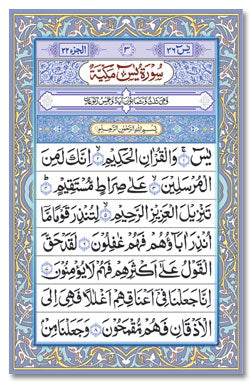 يٰس ٣٦ ٣ الجزء ٢٢
سُورَةُ يٰسٓ مَكِّيَّةٌ
بِسْمِ اللهِ الرَّحْمٰنِ الرَّحِيْمِ
يٰسٓ ۚ وَالْقُرْاٰنِ الْحَكِيْمِ اِنَّكَ لَمِنَ
الْمُرْسَلِيْنَ عَلٰى صِرَاطٍ مُّسْتَقِيْمٍ
تَنْزِيْلَ الْعَزِيْزِ الرَّحِيْمِ لِتُنْذِرَ قَوْمًا مَّا
اُنْذِرَ اٰبَاؤُهُمْ فَهُمْ غٰفِلُوْنَ لَقَدْ حَقَّ
الْقَوْلُ عَلٰى اَكْثَرِهِمْ فَهُمْ لَا يُؤْمِنُوْنَ
اِنَّا جَعَلْنَا فِيْ اَعْنَاقِهِمْ اَغْلٰلًا فَهِيَ اِلَى
الْاَذْقَانِ فَهُمْ مُّقْمَحُوْنَ وَجَعَلْنَا مِنْ